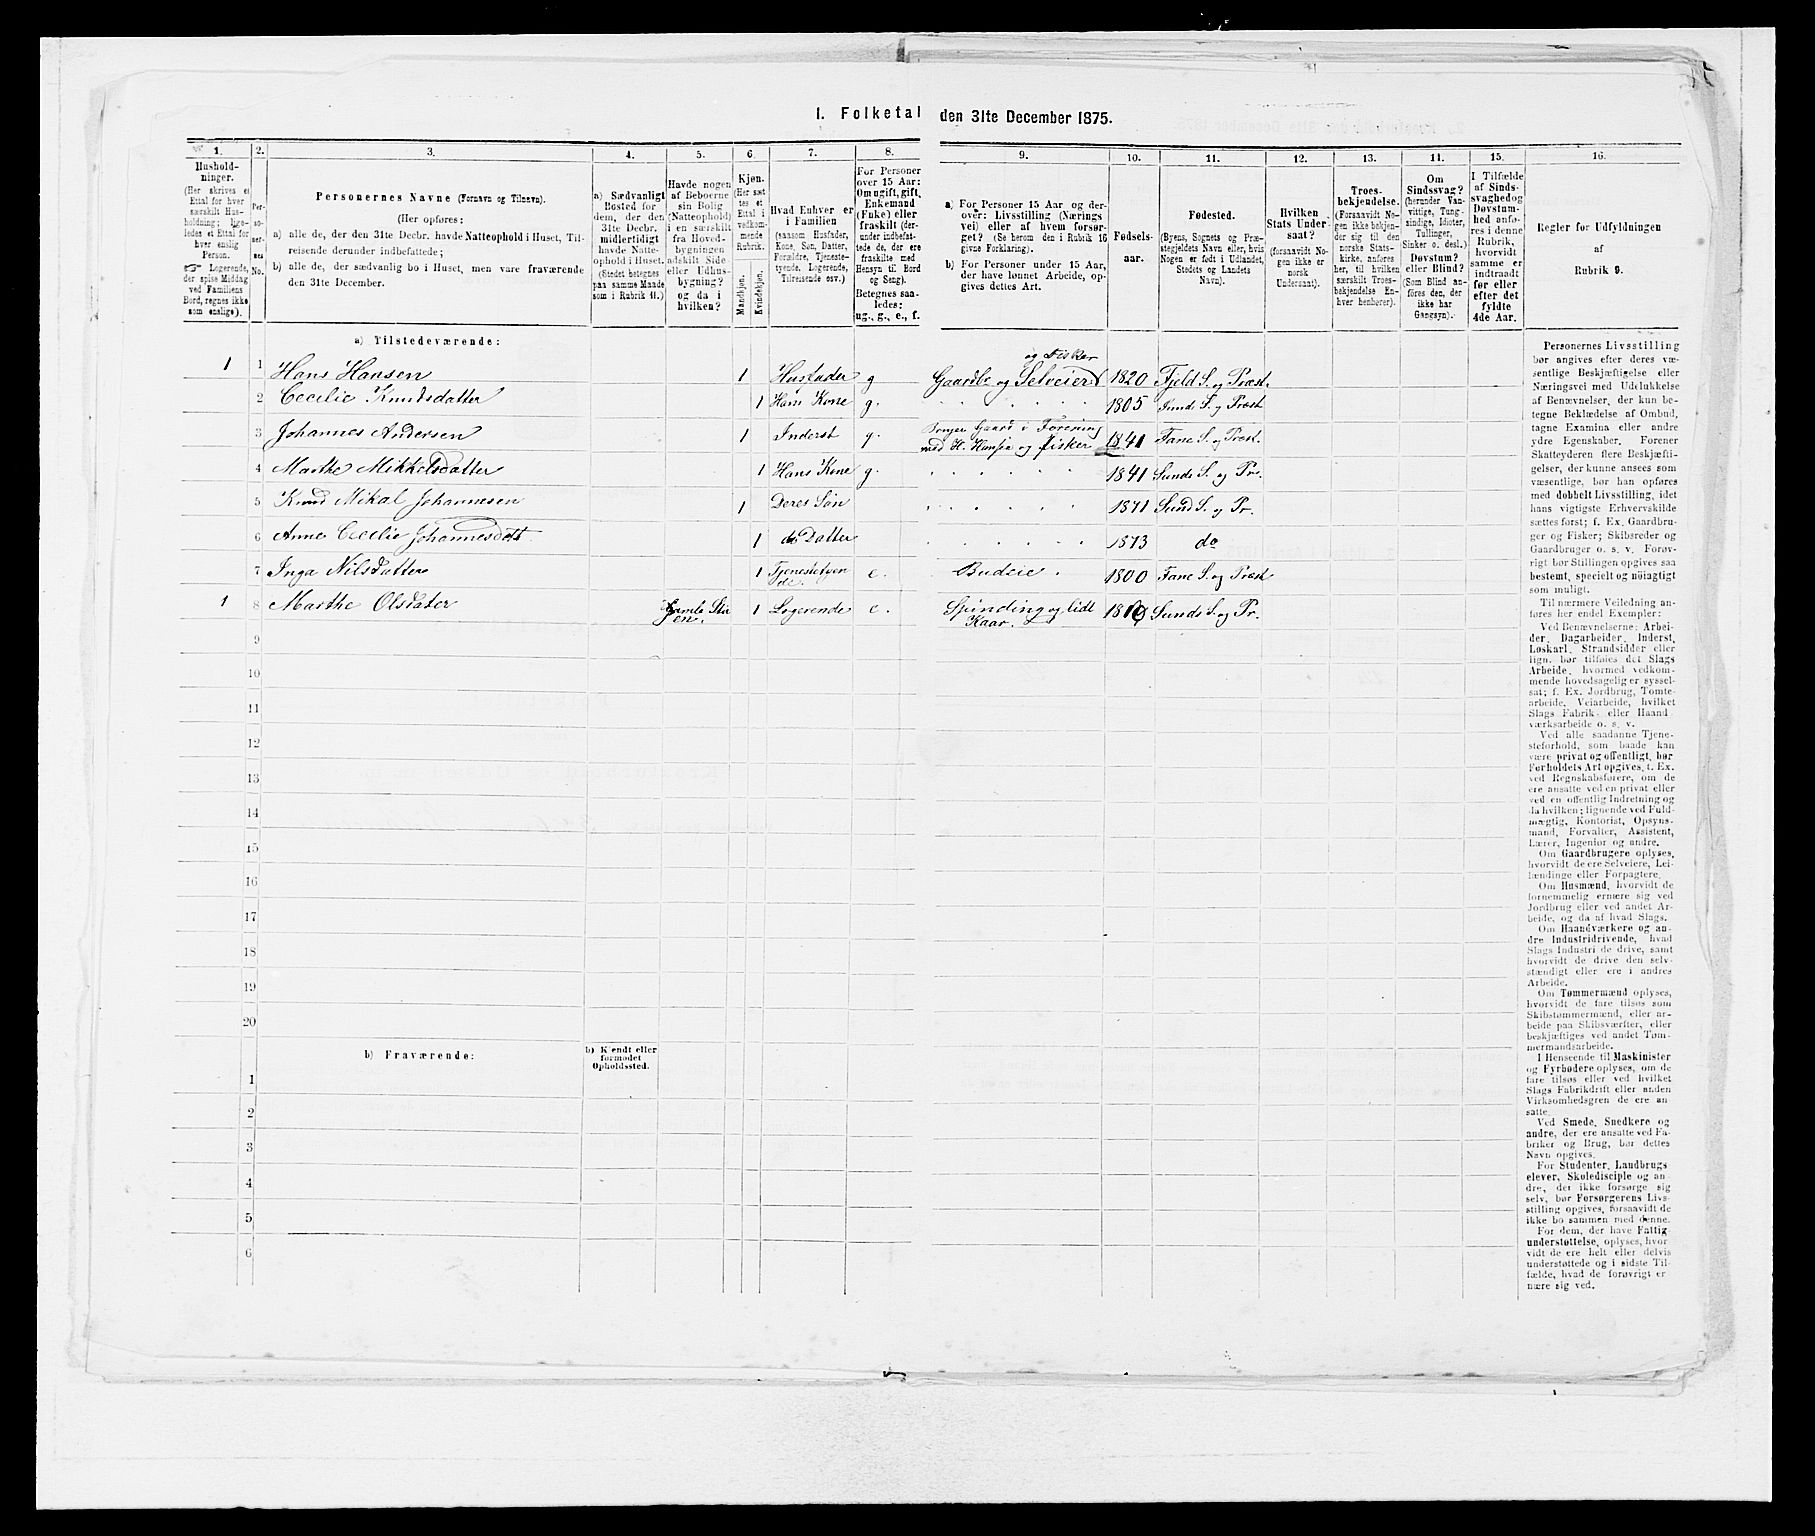 1. Folketal den 31te December 1875.
1. 2. 3. 4. 5. 6. 7. 8. 9. 10. 11. 12. 13. 14. 15. 16.
Hushold-
ninger.
(Her skrives et
Ettal for hver
særskilt Hus-
holdning; lige-
ledes et Ettal for
hver enslig
Person.
☞ Logerende,
der spise Middag
ved Familiens
Bord, regnes ikke
som enslige).
Per-
so-
ner-
nes
No.
Personernes Navne (Fornavn og Tilnavn).
(Her opføres:
a) alle de, der den 31te Decbr. havde Natteophold i Huset, Til-
reisende derunder indbefattede;
b) alle de, der sædvanlig bo i Huset, men vare fraværende
den 31te December.
a) Sædvanligt
Bosted for
dem, der den
31te Decbr.
midlertidigt
havde Natte-
ophold i Huset.
(Stedet betegnes
paa samme Maade
som i Rubrik 11.)
Havde nogen
af Beboerne
sin Bolig
(Natteophold)
i en særskilt
fra Hoved-
bygningen
adskilt Side-
eller Udhus-
bygning?
og da i
hvilken?
Kjøn.
(Her sæt-
tes et
Ettal i
vedkom-
mende
Rubrik.
Mandkjøn.
Kvindekjøn.
Hvad Enhver er
i Familien
(saasom Husfader,
Kone, Søn, Datter,
Forældre, Tjeneste-
tyende, Logerende,
Tilreisende osv.)
For Personer
over 15 Aar:
Om ugift, gift,
Enkemand
(Enke) eller
fraskilt (der-
under indbefat-
tede de, der ere
fraskilte med
Hensyn til Bord
og Seng).
Betegnes saa-
ledes:
ug., g., e., f.
a) For Personer 15 Aar og der-
over: Livsstilling (Nærings-
vei) eller af hvem forsør-
get? (Se herom den i Rubrik 16
givne Forklaring).
b) For Personer under 15 Aar,
der have lønnet Arbeide, op-
gives dettes Art.
Fødsels-
aar.
Fødested.
(Byens, Sognets og Præ-
stegjeldets Navn eller, hvis
Nogen er født i Udlandet,
Stedets og Landets
Navn).
Hvilken
Stats Under-
saat?
(forsaavidt No-
gen ikke er
norsk
Undersaat).
Troes-
bekjendelse.
(Forsaavidt No-
gen ikke bekjen-
der sig til den
norske Stats-
kirke, anføres
her, til hvilken
særskilt Troes-
bekjendelse En-
hver henhører).
Om
Sindssvag?
(herunder Van-
vittige, Tung-
sindige, Idioter,
Tullinger,
Sinker o. desl.)
Døvstum?
eller Blind?
(Som Blind an-
føres den, der
ikke har
Gangsyn).
I Tilfælde
af Sinds-
svaghed og
Døvstum-
hed anfø-
res i denne
Rubrik,
hvorvidt
samme er
indtraadt
før eller
efter det
fyldte
4de Aar.
Regler for Udfyldningen
af
Rubrik 9.
a) Tilstedeværende:
1 1 Hans Hansen 1 Husfader g Gaardbr. og Selveier og Fisker 1820 Fjeld S. og Præst.
2 Cecilie Knudsdatter 1 Hans Kone g. 1805 Sund S. og Præst
3 Johannes Andersen 1 Inderst g. Bruger Gaard i Forening
med H. Hansen og Fisker 1841 Fane S. og Præst.
4 Marthe Mikkelsdatter 1 Hans Kone g. 1841 Sunds S. og Pr.
5 Knud Mikal Johannesen 1 Deres Søn 1871 Sund S. og Pr.
6 Anne Cecelie Johannesdatt 1 do Datter 1873 do
7 Inga Nilsdatter 1 Tjenestetyen
de. e. Budeie 1800 Fane S. og Præst
1 8 Marthe Olsdater Gamle Stu
en. 1 Logerende e. Spinding og lidt
Kaar. Sunds S. og Pr.
9
10
11
12
13
14
15
16
17
18
19
20
b) Fraværende:
b) Kjendt eller
formodet
Opholdssted.
1
2
3
4
5
6
Personernes Livsstilling
bør angives efter deres væ-
sentlige Beskjæftigelse eller
Næringsvei med Udelukkelse
af Benævnelser, der kun be-
tegne Beklædelse af Ombud,
tagne Examina eller andre
ydre Egenskaber. Forener
Skatteyderen flere Beskjæfti-
gelser, der kunne ansees som
væsentlige, bør han opføres
med dobbelt Livsstilling, idet
hans vigtigste Erhvervskilde
sættes først; f. Ex. Gaardbru-
ger og Fisker; Skibsreder og
Gaardbruger o. s. v. Forøv-
rigt bør Stillingen opgives saa
bestemt, specielt og nøiagtigt
som muligt.
Til nærmere Veiledning an-
føres her endel Exempler:
Ved Benævnelserne: Arbei-
der, Dagarbeider, Inderst,
Løskarl, Strandsidder eller
lign. bør tilføies det Slags
Arbeide, hvormed vedkom-
mende hovedsagelig er syssel-
sat; f. Ex. Jordbrug, Tomte-
arbeide, Veiarbeide, hvilket
Slags Fabrik- eller Haand-
værksarbeide o. s. v.
Ved alle saadanne Tjene-
steforhold, som baade kan
være privat og offentligt, bør
Forholdets Art opgives, f. Ex.
ved Regnskabsførere, om de
ere ansatte ved en privat eller
ved en offentlig Indretning og
da hvilken; lignende ved Fuld-
mægtig, Kontorist, Opsyns-
mand, Forvalter, Assistent,
Lærer, Ingeniør og andre.
Om Gaardbrugere oplyses,
hvorvidt de ere Selveiere, Lei-
lændinge eller Forpagtere.
Om Husmænd, hvorvidt de
fornemmelig ernære sig ved
Jordbrug eller ved andet Ar-
beide, og da af hvad Slags.
Om Haandværkere og an-
dre Industridrivende, hvad
Slags Industri de drive, samt
hvorvidt de drive den selv-
stændigt eller ere i andres
Arbeide.
Om Tømmermænd oplyses,
hvorvidt de fare tilsøs som
Skibstømmermænd, eller ar-
beide paa Skibsværfter, eller
beskjæftiges ved andet Tøm-
mermandsarbeide.
I Henseende til Maskinister
og Fyrbødere oplyses, om de
fare tilsøs eller ved hvilket
Slags Fabrikdrift eller anden
Virksomhedsgren de ere an-
satte.
Ved Smede, Snedkere og
andre, der ere ansatte ved Fa-
briker og Brug, bør dettes
Navn opgives.
For Studenter, Landbrugs-
elever, Skoledisciple og an-
dre, der ikke forsørge sig
selv, bør Forsørgerens Livs-
stilling opgives, forsaavidt de
ikke bo sammen med denne.
For dem, der have Fattig-
understøttelse, oplyses, hvor-
vidt de ere helt eller delvis
understøttede og i sidste Til-
fælde, hvad de forøvrigt er-
nære sig ved.